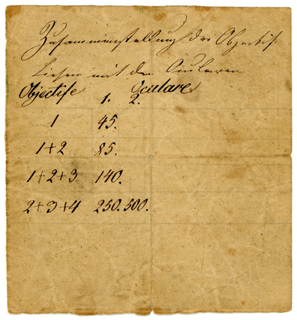 Zusammenstellung der Objectif
Linsen mit den Ocularen
Objectife Oculare
1. 2.
1 45.
1+2 85.
1+2+3 140.
2+3+4 250. 500.